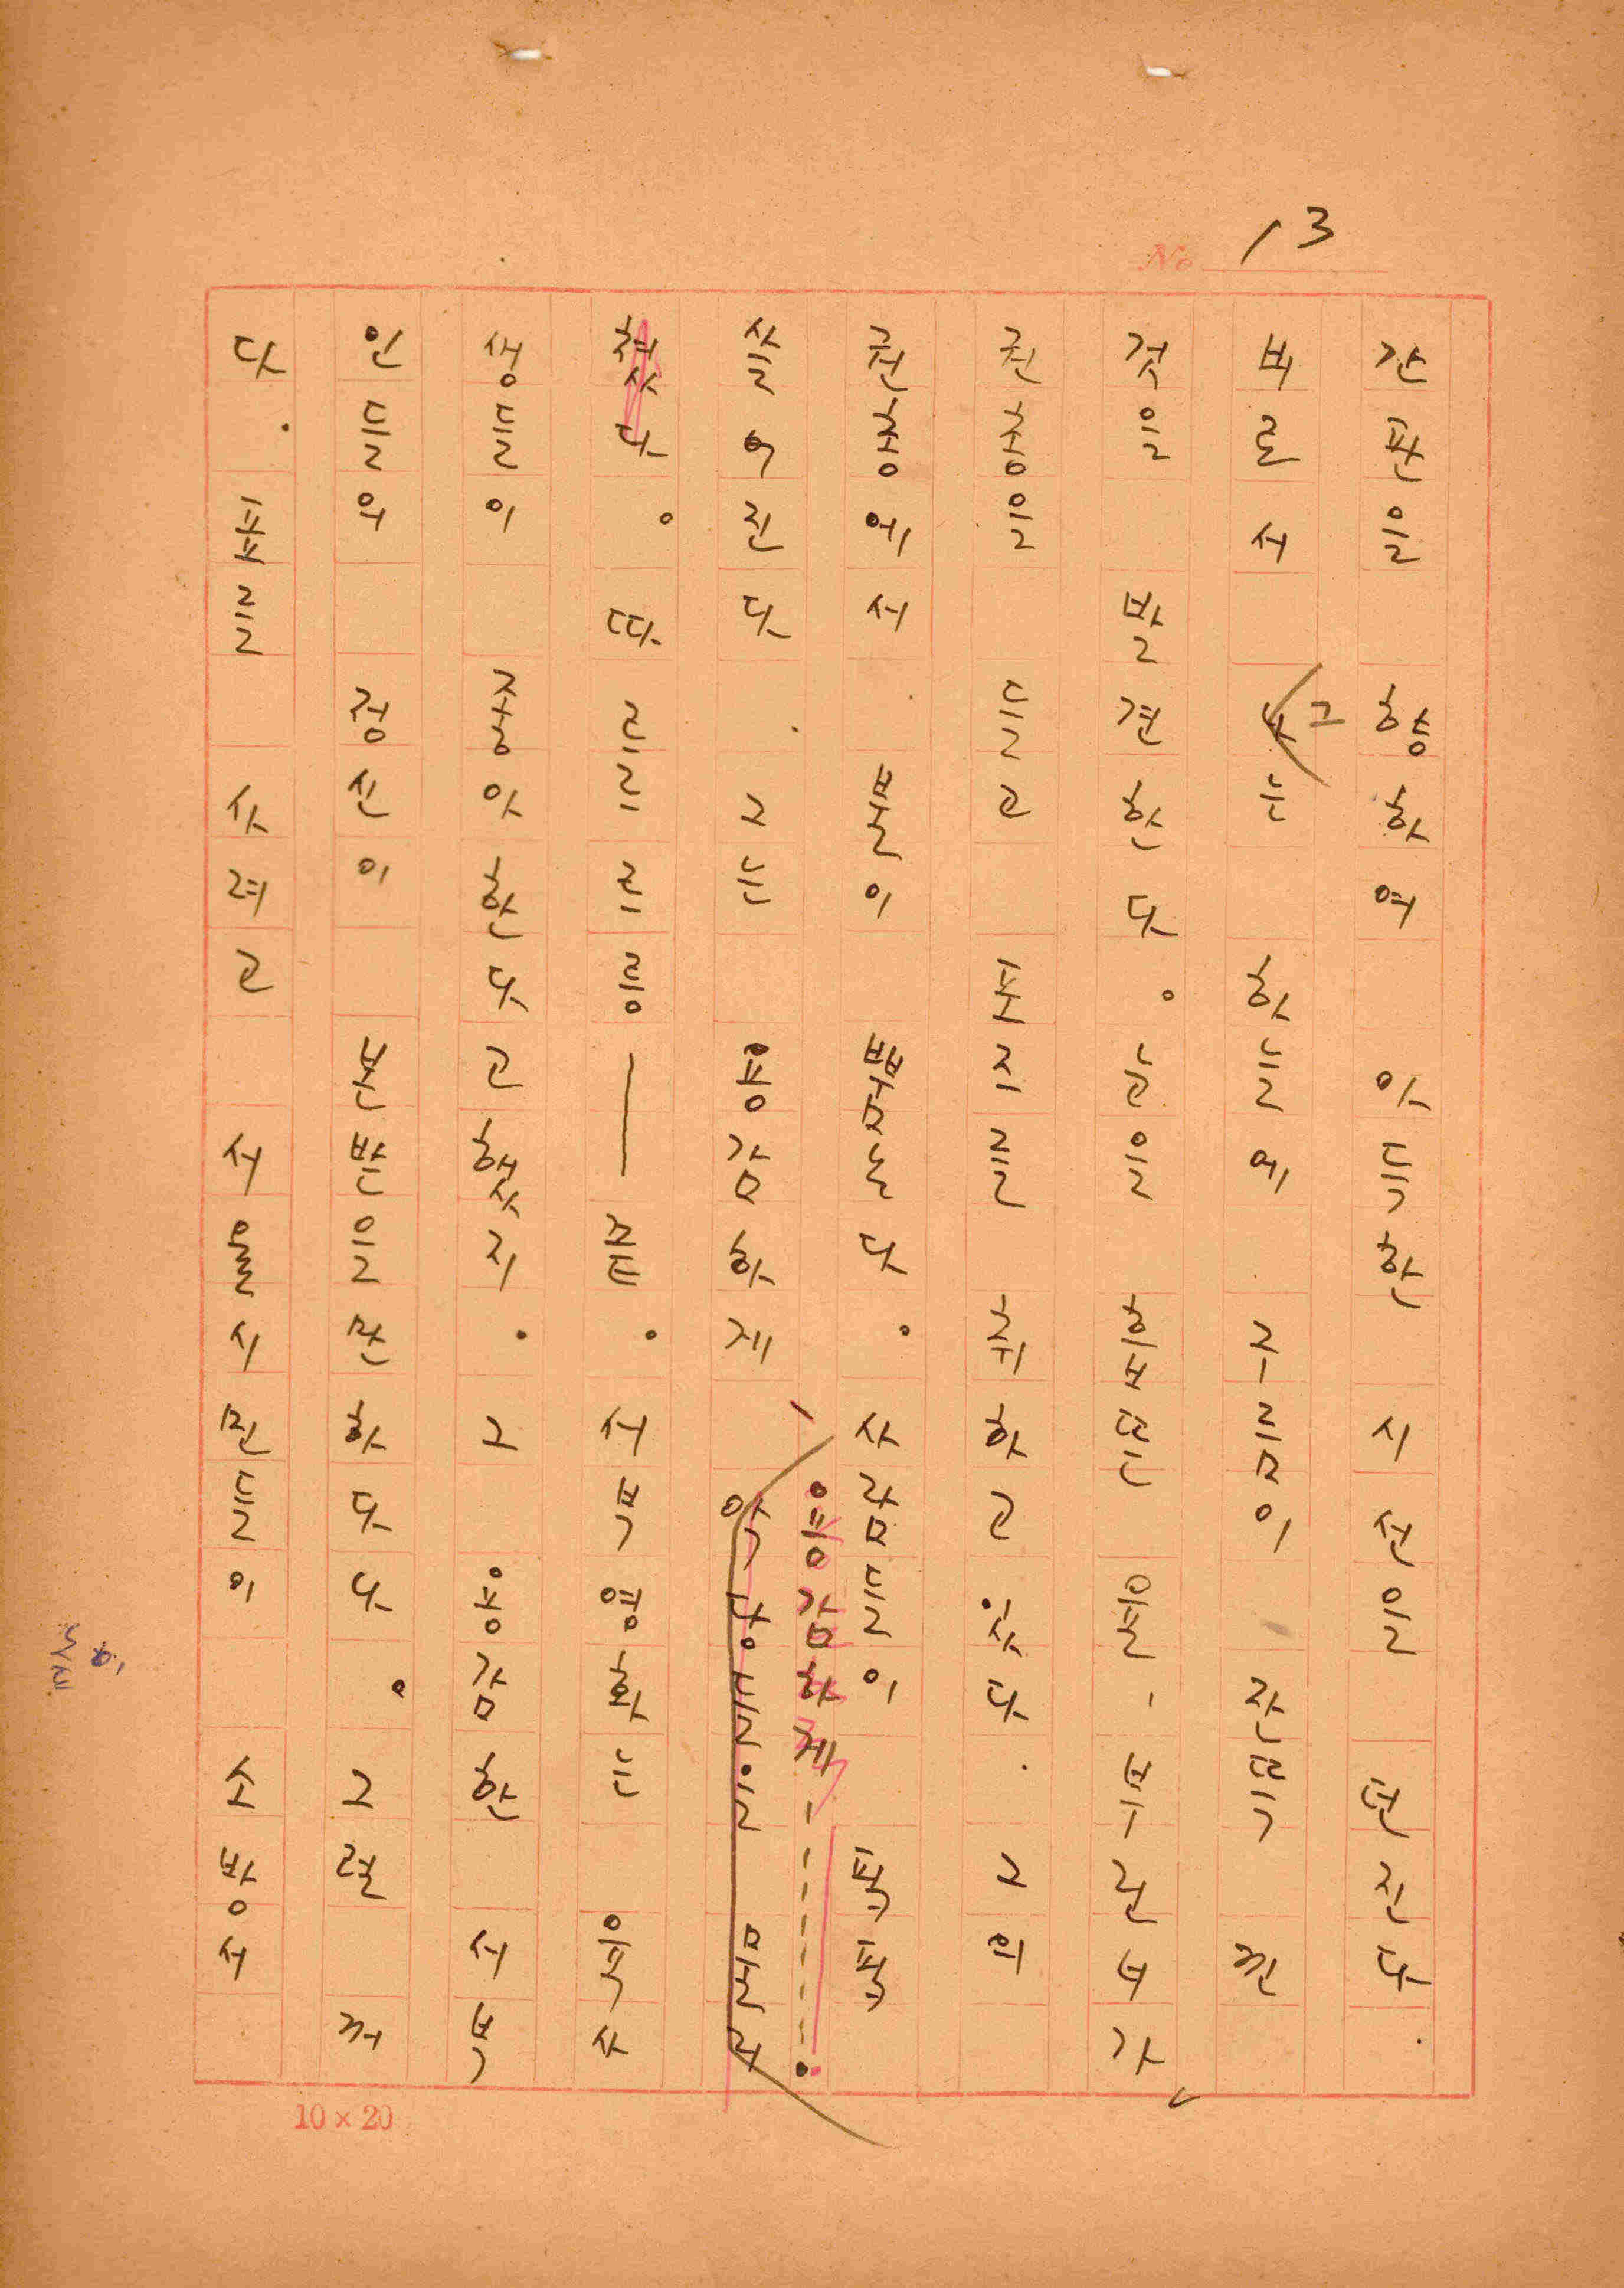 13
No
간판을 향하여 아득한 시선을 던진다.
비로서 그는 하늘에 구름이 잔뜩 낀
것을 발견한다。눈을 부란너가
권총을 들고 포지를 취하고 있다. 그의
권총에서 불이 뿜는다. 사람들이 픽픽
용감하게
쓸어진다. 그는 용감하게 악당들을 물러
쳤다。따르르르릉—쯔. 서북영화는 육사
생들이 좋아한다고 했지. 그 용감한 서북
인들의 정신이 본받을만하다나. 그럴꺼
다. 표를 사려고 서울시민들이 소방서
10×20